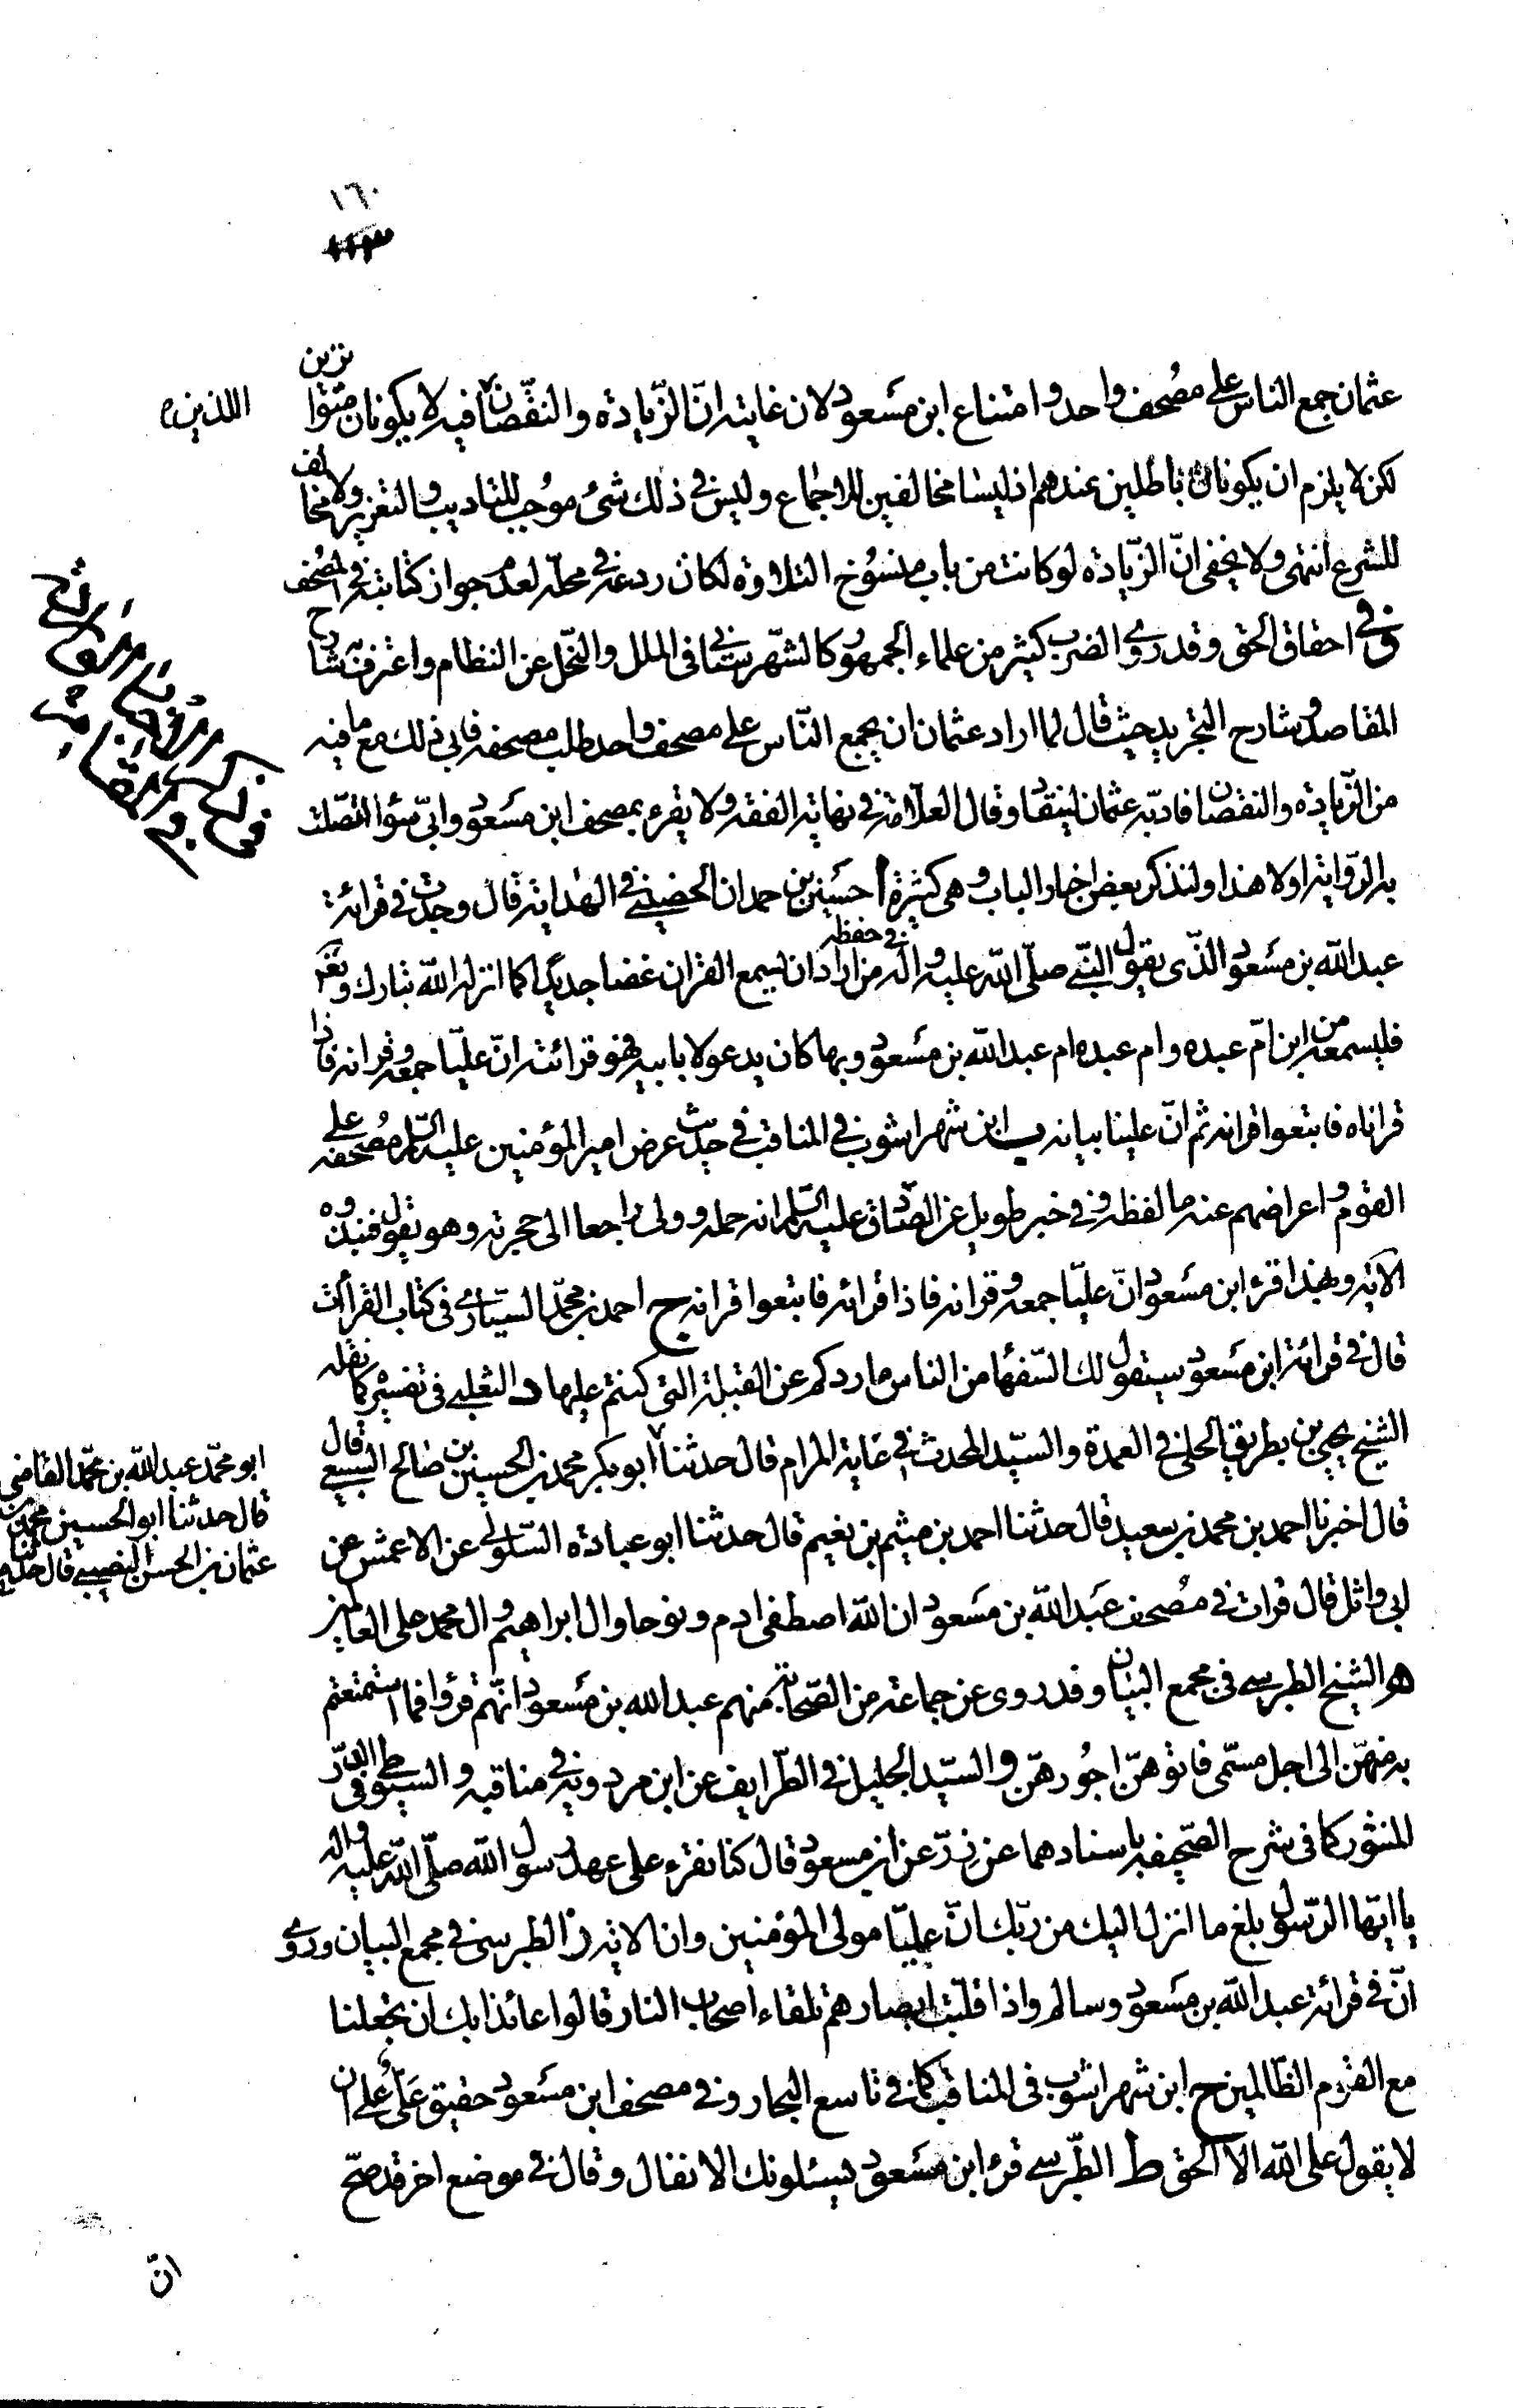 ١٦٠
عثمان جمع الناس على مصحف واحد و امتناع ابن مسعود لان غايته ان الزيادة والنقصان فيه لا يكونان متواترين
اللذين
لكن لا يلزم ان يكونا باطلين عندهم اذ ليسا مخالفين للاجماع وليس فى ذلك شئ موجب للتاديب والتعزير ولا مخالف
للشرع انتهى ولا يخفى ان الزيادة لو كانت من باب منسوخ التلاوة لكان ردعه فى محله لعدم جواز كتابته فى المصحف
وفى احقاق الحق وقد روى الضرب كثير من علماء الجمهور كالشهرستانى فى الملل والنحل عن النظام واعترف به شارح
المقاصد وشارح التجريد حيث قال لما اراد عثمان ان يجمع الناس على مصحف واحد طلب مصحفه فابى ذلك مع ما فيه
من الزيادة والنقصان فادبه عثمان لينقاد وقال العلامة فى نهاية الفقه ولا يقرء بمصحف ابن مسعود وابىّ سواء اتصلت
به الرواية اولا هذا ولنذكر بعض اخبار الباب وهى كثيرة ا حسين بن حمدان الحضينى فى الهداية قال وجدت فى قرائة
عبد الله بن مسعود الذى يقول النبى صلى الله عليه واله فى حفظه من اراد ان يسمع القران غضا جديدا كما انزله الله تبارك وتعالى
فليسمعه من ابن ام عبده وام عبده ام عبد الله بن مسعود وبها كان يدعو لا بابيه فهو قرائته انّ عليّا جمعه وقرانه فاذا
قراناه فاتبعوا قرانه ثم انّ علينا بيانه ب ابن شهراشوب فى المناقب فى حديث عرض امير المؤمنين عليه السلم مصحفه على
القوم واعراضهم عنه ما لفظه وفى خبر طويل عن الصادق عليه السلم انه حمله وولى راجعا الى حجرته وهو يقول فنبذوه
الاية ولهذا قرء ابن مسعود انّ عليّا جمعه وقرانه فاذا قرائه فاتبعوا قرانه ج احمد بن محمد السيارى فى كتاب القرآءت
قال فى قرائة ابن مسعود سيقول لك السفهاء من الناس ما ردكم عن القبلة التى كنتم عليها د الثعلبى فى تفسيره كما نقله
الشيخ يحيى بن بطريق الحلى فى العمدة والسيد المحدث فى غاية المرام قال حدثنا ابو بكر محمد بن الحسين بن صالح السبيعى قال
ابو محمد عبد الله بن محمد القاضى
قال حدثنا ابو الحسين محمد بن
عثمان بن الحسن النصيبى قال حدثنا
قال اخبرنا احمد بن محمد بن سعيد قال حدثنا احمد بن ميثم بن نعيم قال حدثنا ابو عبادة السلولى عن الاعمش عن
ابى وائل قال قرات فى مصحف عبد الله بن مسعود ان الله اصطفى ادم ونوحا وال ابراهيم وال محمد على العالمين
ه الشيخ الطبرسى فى مجمع البيان وقد روى عن جماعة من الصحابة منهم عبد الله بن مسعود انهم قرؤا فما استمتعتم
به منهن الى اجل مسمى فاتوهن اجورهن و السيد الجليل فى الطرايف عن ابن مردويه فى مناقبه والسيوطى فى الدر
المنثور كما فى شرح الصحيفة باسنادهما عن زرّ عن ابن مسعود قال كنا نقرء على عهد رسول الله صلى الله عليه واله
يا ايها الرسول بلغ ما انزل اليك من ربك انّ عليّا مولى المؤمنين وان الاية ز الطبرسى فى مجمع البيان وروى
انّ فى قرائة عبد الله بن مسعود وسالم واذا قلبت ابصارهم تلقاء اصحاب النار قالوا عائذا بك ان تجعلنا
مع القوم الظالمين ح ابن شهراشوب فى المناقب كما فى تاسع البحار وفى مصحف ابن مسعود حقيق على علىّ ان
لا يقول على الله الا الحق ط الطبرسى قرء ابن مسعود يسئلونك الانفال وقال فى موضع اخر قد صح
انّ